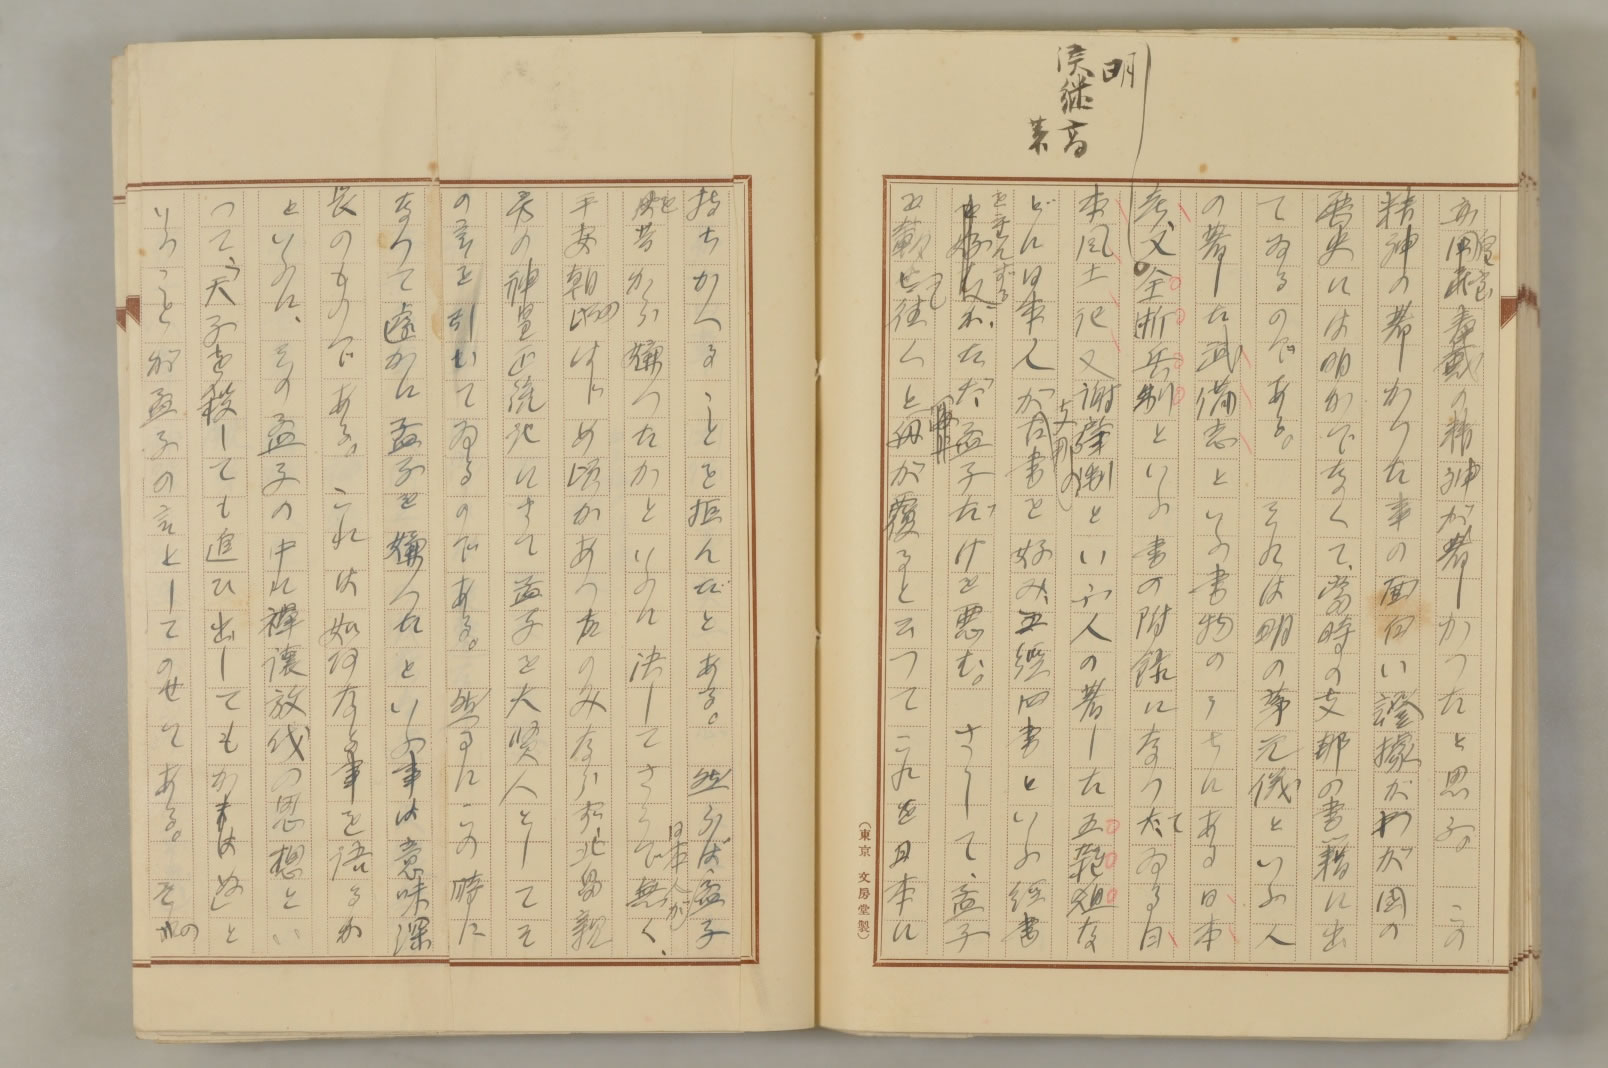 明
侯継高
著
皇室
奉戴の精神が著しかつたと思ふ。この
精神の著しかつた事の面白い證據がわが国の
歴史には明かでなくて、當時の支那の書籍に出
てゐるのである。それは明の茅元儀といふ人
の著した武備志といふ書物のうちにある日本
考、又全浙兵制といふ書の附録になつてゐる日
本風土記又謝肇淛といふ人の著した五雜俎な
どに日本人が支那の古書を好み、五經四書といふ經書
を重んずる
が、ただ孟子だけを悪む。さうして、孟子
を載せ往くと舟が覆ると云つてこれを日本に
(東京 文房堂製)
持ちかへることを拒んだとある。然らば、孟子
を昔から嫌つたかといふに決してさうで無く、
日本人が
平安朝のはじめ頃かあつたのみならず北畠親
房の神皇正統記にさへ孟子を大賢人としてそ
の言を引いてゐるのである。然るにこの時に
なつて遽かに孟子を嫌つたといふ事は意味深
長のものである。これは如何なる事を語るか
といふに、その孟子の中に禪讓放伐の思想とい
つて、天子を殺しても追ひ出してもかまはぬと
いふことが孟子の言としてのせてある。その